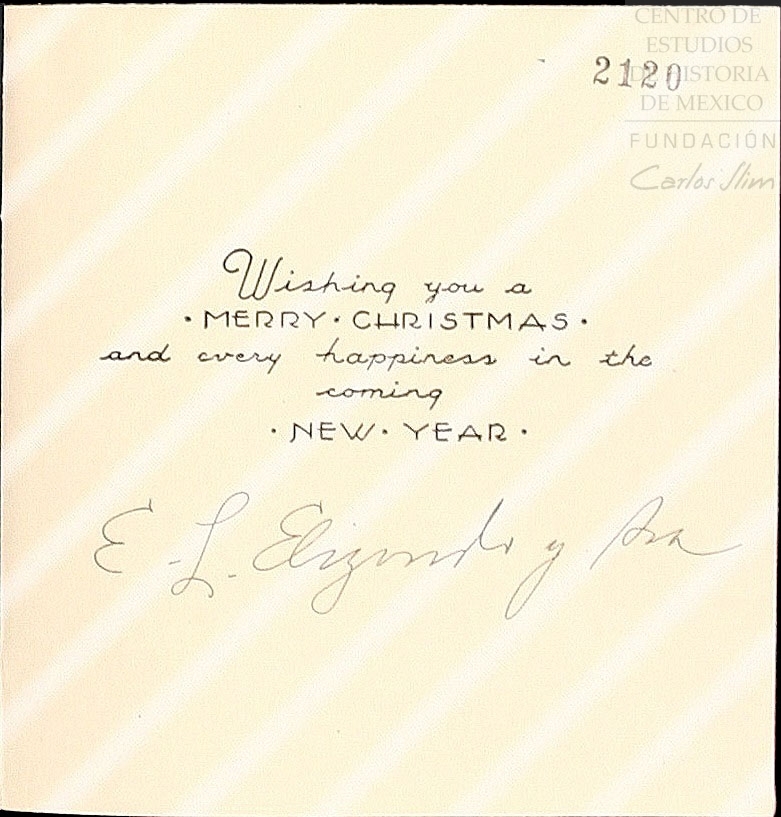 CENTRO DE
ESTUDIOS
DE HISTORIA
DE MEXICO
FUNDACIÓN
Carlos Slim
2120
Wishing you a
· MERRY · CHRISTMAS ·
and every happiness in the
coming
· NEW · YEAR ·
E. L. Elizondo y Sra